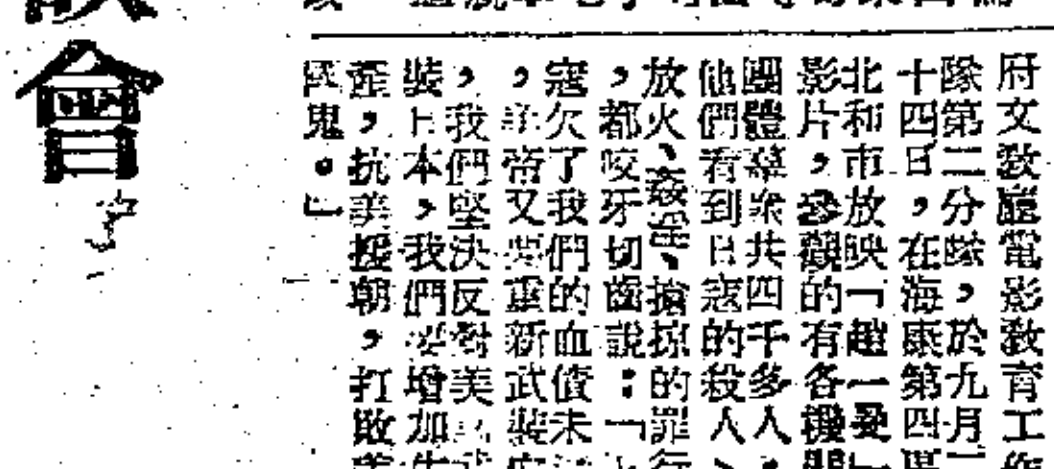 會
府文教廳電影教育工作
隊第二分隊，於九月二
十四日，在海康第四區
北和市放映「趙一曼」
影片，參觀的有各機關
團體羣衆共四千多人，
他們看到日寇的殺人、
放火、姦淫、搶掠的罪行
，都咬牙切齒說：「
寇欠了我們的血債未
，美帝又要重新武裝
，我們堅決反對美
裝日本，我們要增加生
產，抗美援朝，打敗美
國鬼。」